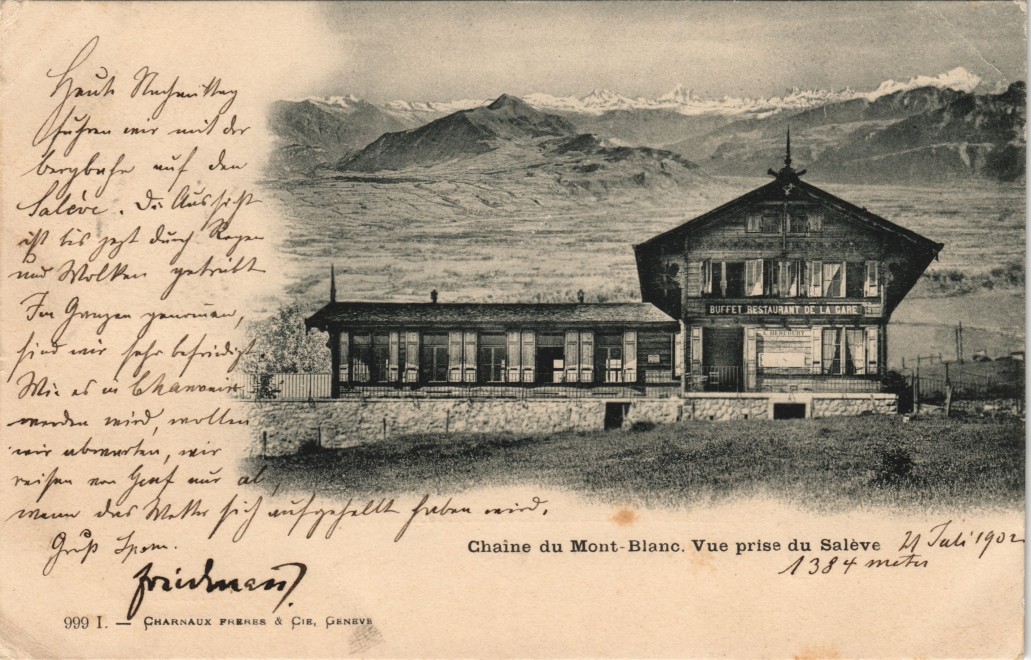 Heute Nachmittag
fuhren wir mit der
bergbahn auf den
Salève. Die Aussicht
ist bis jezt durch Regen
und Wolken getrübt
Im Ganzen genommen,
sind wir sehr befriedigt
Wie es in Chamonix
werden wird, wollen
wir abwarten, wir
reisen von Genf nur ab,
wenn das Wetter sich aufgehellt haben wird.
Gruß
BUFFET RESTAURANT DE LA GARE
Chaîne du Mont-Blanc. Vue prise du Salève
21 Juli 1902
1384 meter
999 I. — CHARNAUX FRERES & CIE, GENEVE